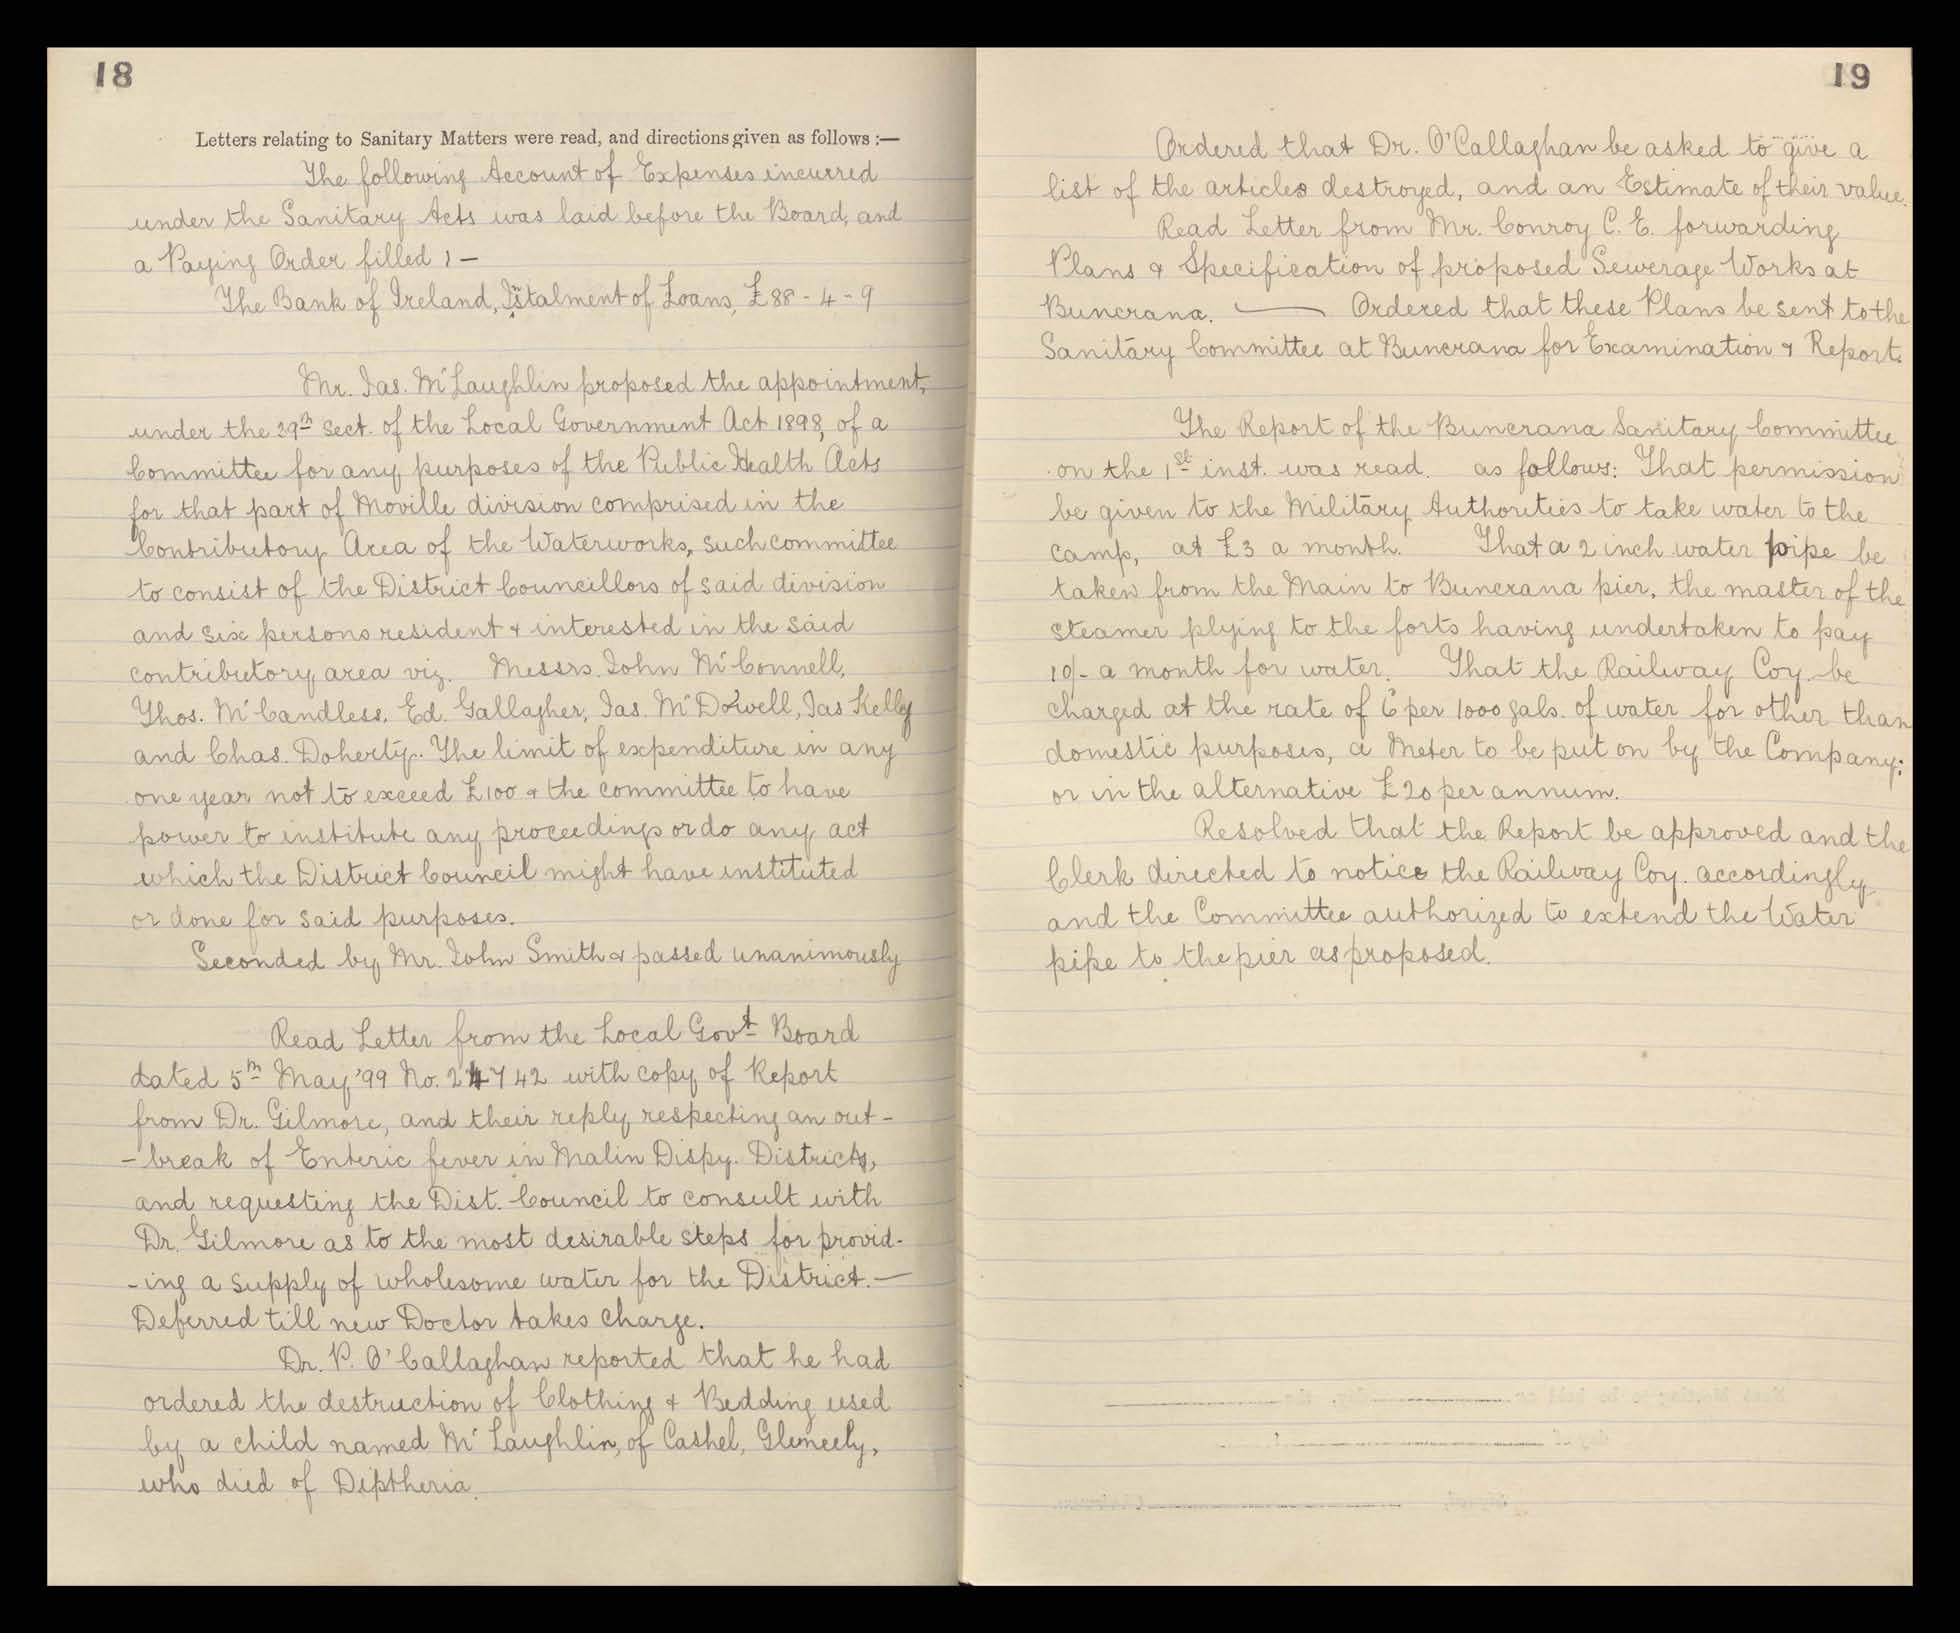 18
Letters relating to Sanitary Matters were read, and directions given as follows :—
The following Account of Expenses incurred
under the Sanitary Acts was laid before the Board, and
a Paying Order filled :—
The Bank of Ireland, Instalment of Loans, £88-4-9
Mr. Jas. McLaughlin proposed the appointment,
under the 29th sect. of the Local Government Act 1898, of a
Committee for any purposes of the Public Health Acts
for that part of Moville division comprised in the
Contributory Area of the Waterworks, such committee
to consist of the District Councillors of said division
and six persons resident & interested in the said
contributory area viz. Messrs. John McConnell,
Thos. McCandless, Ed. Gallagher, Jas. McDowell, Jas Kelly
and Chas. Doherty. The limit of expenditure in any
one year not to exceed £100 & the committee to have
power to institute any proceedings or do any act
which the District Council might have instituted
or done for said purposes.
Seconded by Mr. John Smith & passed unanimously
Read Letter from the Local Govt Board
dated 5th May '99 No. 24742 with copy of Report
from Dr. Gilmore, and their reply respecting an out-
-break of Enteric fever in Malin Dispy. Districts,
and requesting the Dist. Council to consult with
Dr. Gilmore as to the most desirable steps for provid-
-ing a supply of wholesome water for the District.—
Deferred till new Doctor takes charge.
Dr. P. O'Callaghan reported that he had
ordered the destruction of Clothing & Bedding used
by a child named McLaughlin, of Cashel, Gleneely,
who died of Diptheria.
19
Ordered that Dr. O'Callaghan be asked to give a
list of the articles destroyed, and an Estimate of their value.
Read Letter from Mr. Conroy C.E. forwarding
Plans & Specification of proposed Sewerage Works at
Buncrana. — Ordered that these Plans be sent to the
Sanitary Committee at Buncrana for Examination & Report.
The Report of the Buncrana Sanitary Committee
on the 1st inst. was read as follows: That permission
be given to the Military Authorities to take water to the
camp, at £3 a month. That a 2 inch water pipe be
taken from the Main to Buncrana pier, the master of the
steamer plying to the forts having undertaken to pay
10/- a month for water. That the Railway Coy. be
charged at the rate of 6 per 1000 gals. of water for other than
domestic purposes, a Meter to be put on by the Company:
or in the alternative £20 per annum.
Resolved that the Report be approved and the
Clerk directed to notice the Railway Coy. accordingly
and the Committee authorized to extend the Water
pipe to the pier as proposed.